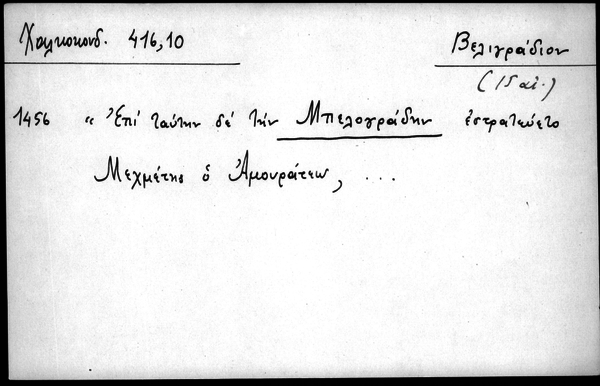 Χαλκοκονδ. 416,10
Βελιγράδιον
(15 αἰ.)
1456 « Ἐπί ταύτην δέ τήν Μπελογράδην ἐστρατεύετο
Μεχμέτης ὁ Ἀμουράτεω, ...